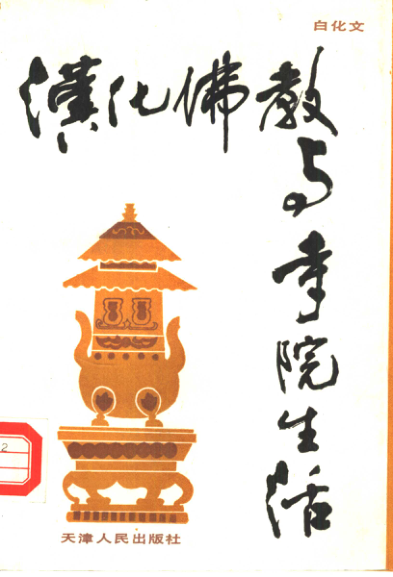 白化文
漢化佛教
与寺院生活
天津人民出版社
2